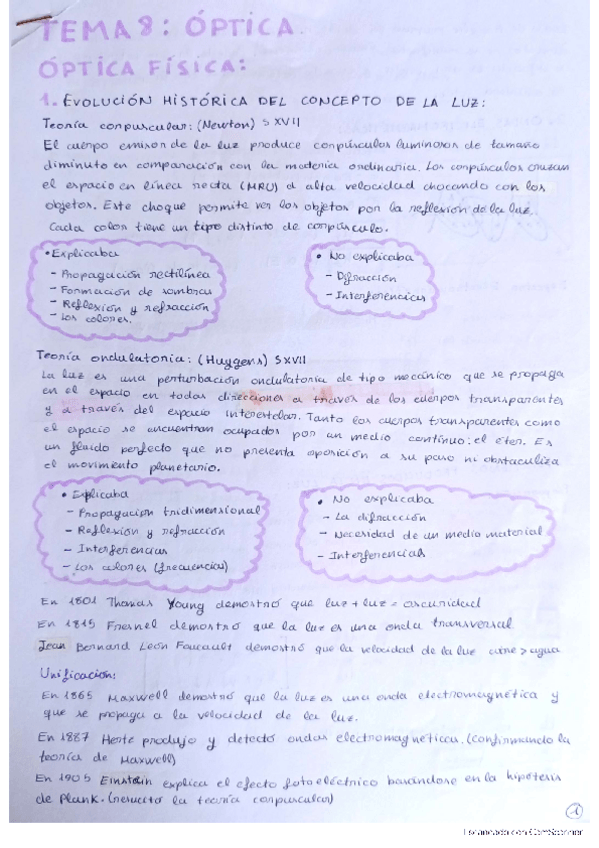 TEMA 8: ÓPTICA.
ÓPTICA FÍSICA:
1. EVOLUCIÓN HISTÓRICA DEL CONCEPTO DE LA LUZ:
Teoría corpuscular: (Newton) S XVII
El cuerpo emisor de la luz produce corpúsculos luminosos de tamaño
diminuto en comparación con la materia ordinaria. Los corpúsculos cruzan
el espacio en línea recta (MRU) a alta velocidad chocando con los
objetos. Este choque permite ver los objetos por la reflexión de la luz.
Cada color tiene un tipo distinto de corpúsculo.
• Explicaba
- Propagación rectilínea
- Formación de sombras
- Reflexión y refracción
- Los colores.
• No explicaba
- Difracción
- Interferencias
Teoría ondulatoria: (Huygens) S XVII
La luz es una perturbación ondulatoria de tipo mecánico que se propaga
en el espacio en todas direcciones a través de los cuerpos transparentes
y a través del espacio interestelar. Tanto los cuerpos transparentes como
el espacio se encuentran ocupados por un medio continuo: el eter. Es
un fluido perfecto que no presenta oposición a su paso ni obstaculiza
el movimiento planetario.
• Explicaba
- Propagación tridimensional
- Reflexión y refracción
- Interferencias
- Los colores (frecuencias)
• No explicaba
- La difracción
- Necesidad de un medio material
- Interferencias
En 1801 Thomas Young demostró que luz + luz = oscuridad
En 1815 Fresnel demostró que la luz es una onda transversal
Jean Bernard León Foucault demostró que la velocidad de la luz aire > agua
Unificación:
En 1865 Maxwell demostró que la luz es una onda electromagnética y
que se propaga a la velocidad de la luz.
En 1887 Hertz produjo y detectó ondas electromagnéticas. (confirmando la
teoría de Maxwell)
En 1905 Einstein explica el efecto fotoeléctrico basándose en la hipótesis
de Plank. (resucitó la teoría corpuscular)
1
Escaneado con CamScanner